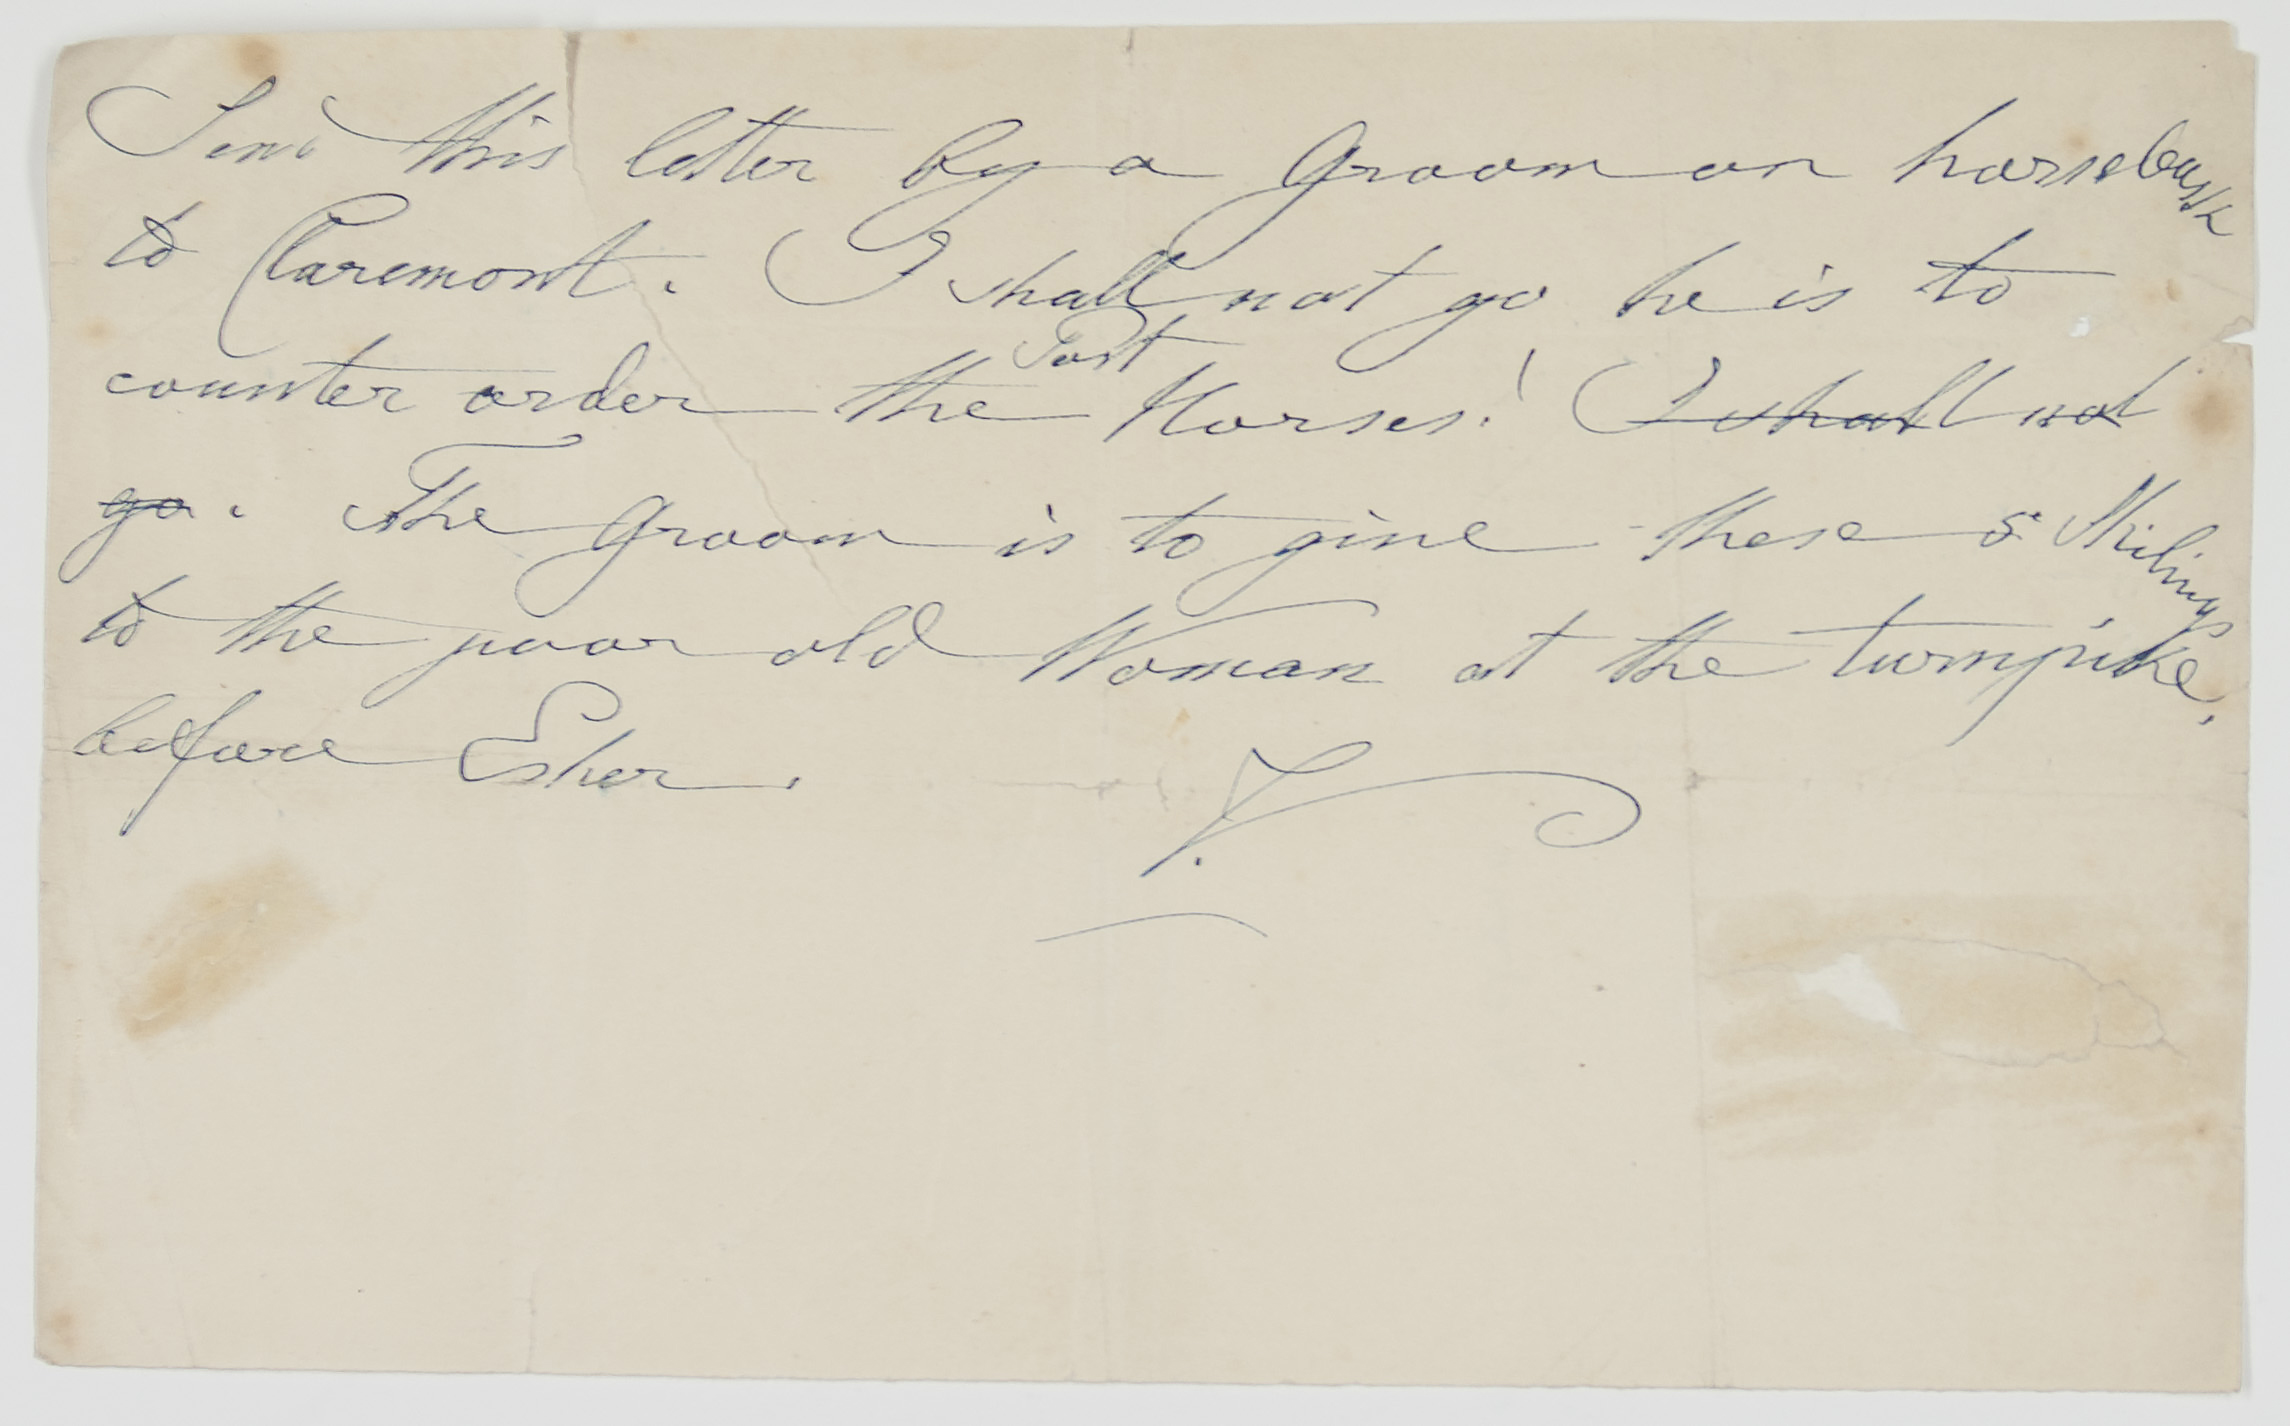 Send this letter by a Groom on horseback
to Claremont. I shall not go he is to
counter order the Post Horses! I shall not
go. The Groom is to give these 5 Shilings
to the poor old Woman at the turnpike,
before Esher.
V.